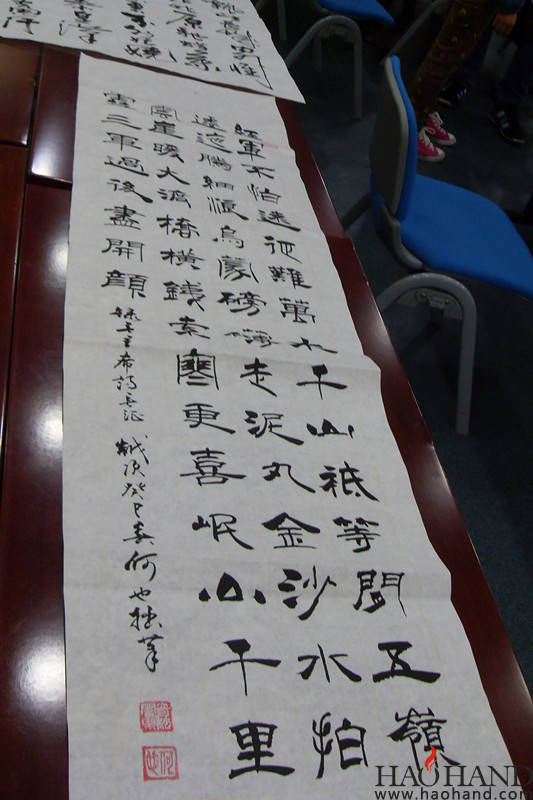 紅軍不怕遠征難萬水千山祗等閒五嶺
逶迤騰細浪烏蒙磅礴走泥丸金沙水拍
雲崖暖大渡橋橫鐵索寒更喜岷山千里
雪三軍過後盡開顏 毛主席詩長征 歲次癸巳春何也
何也
HAOHAND
www.haohand.com